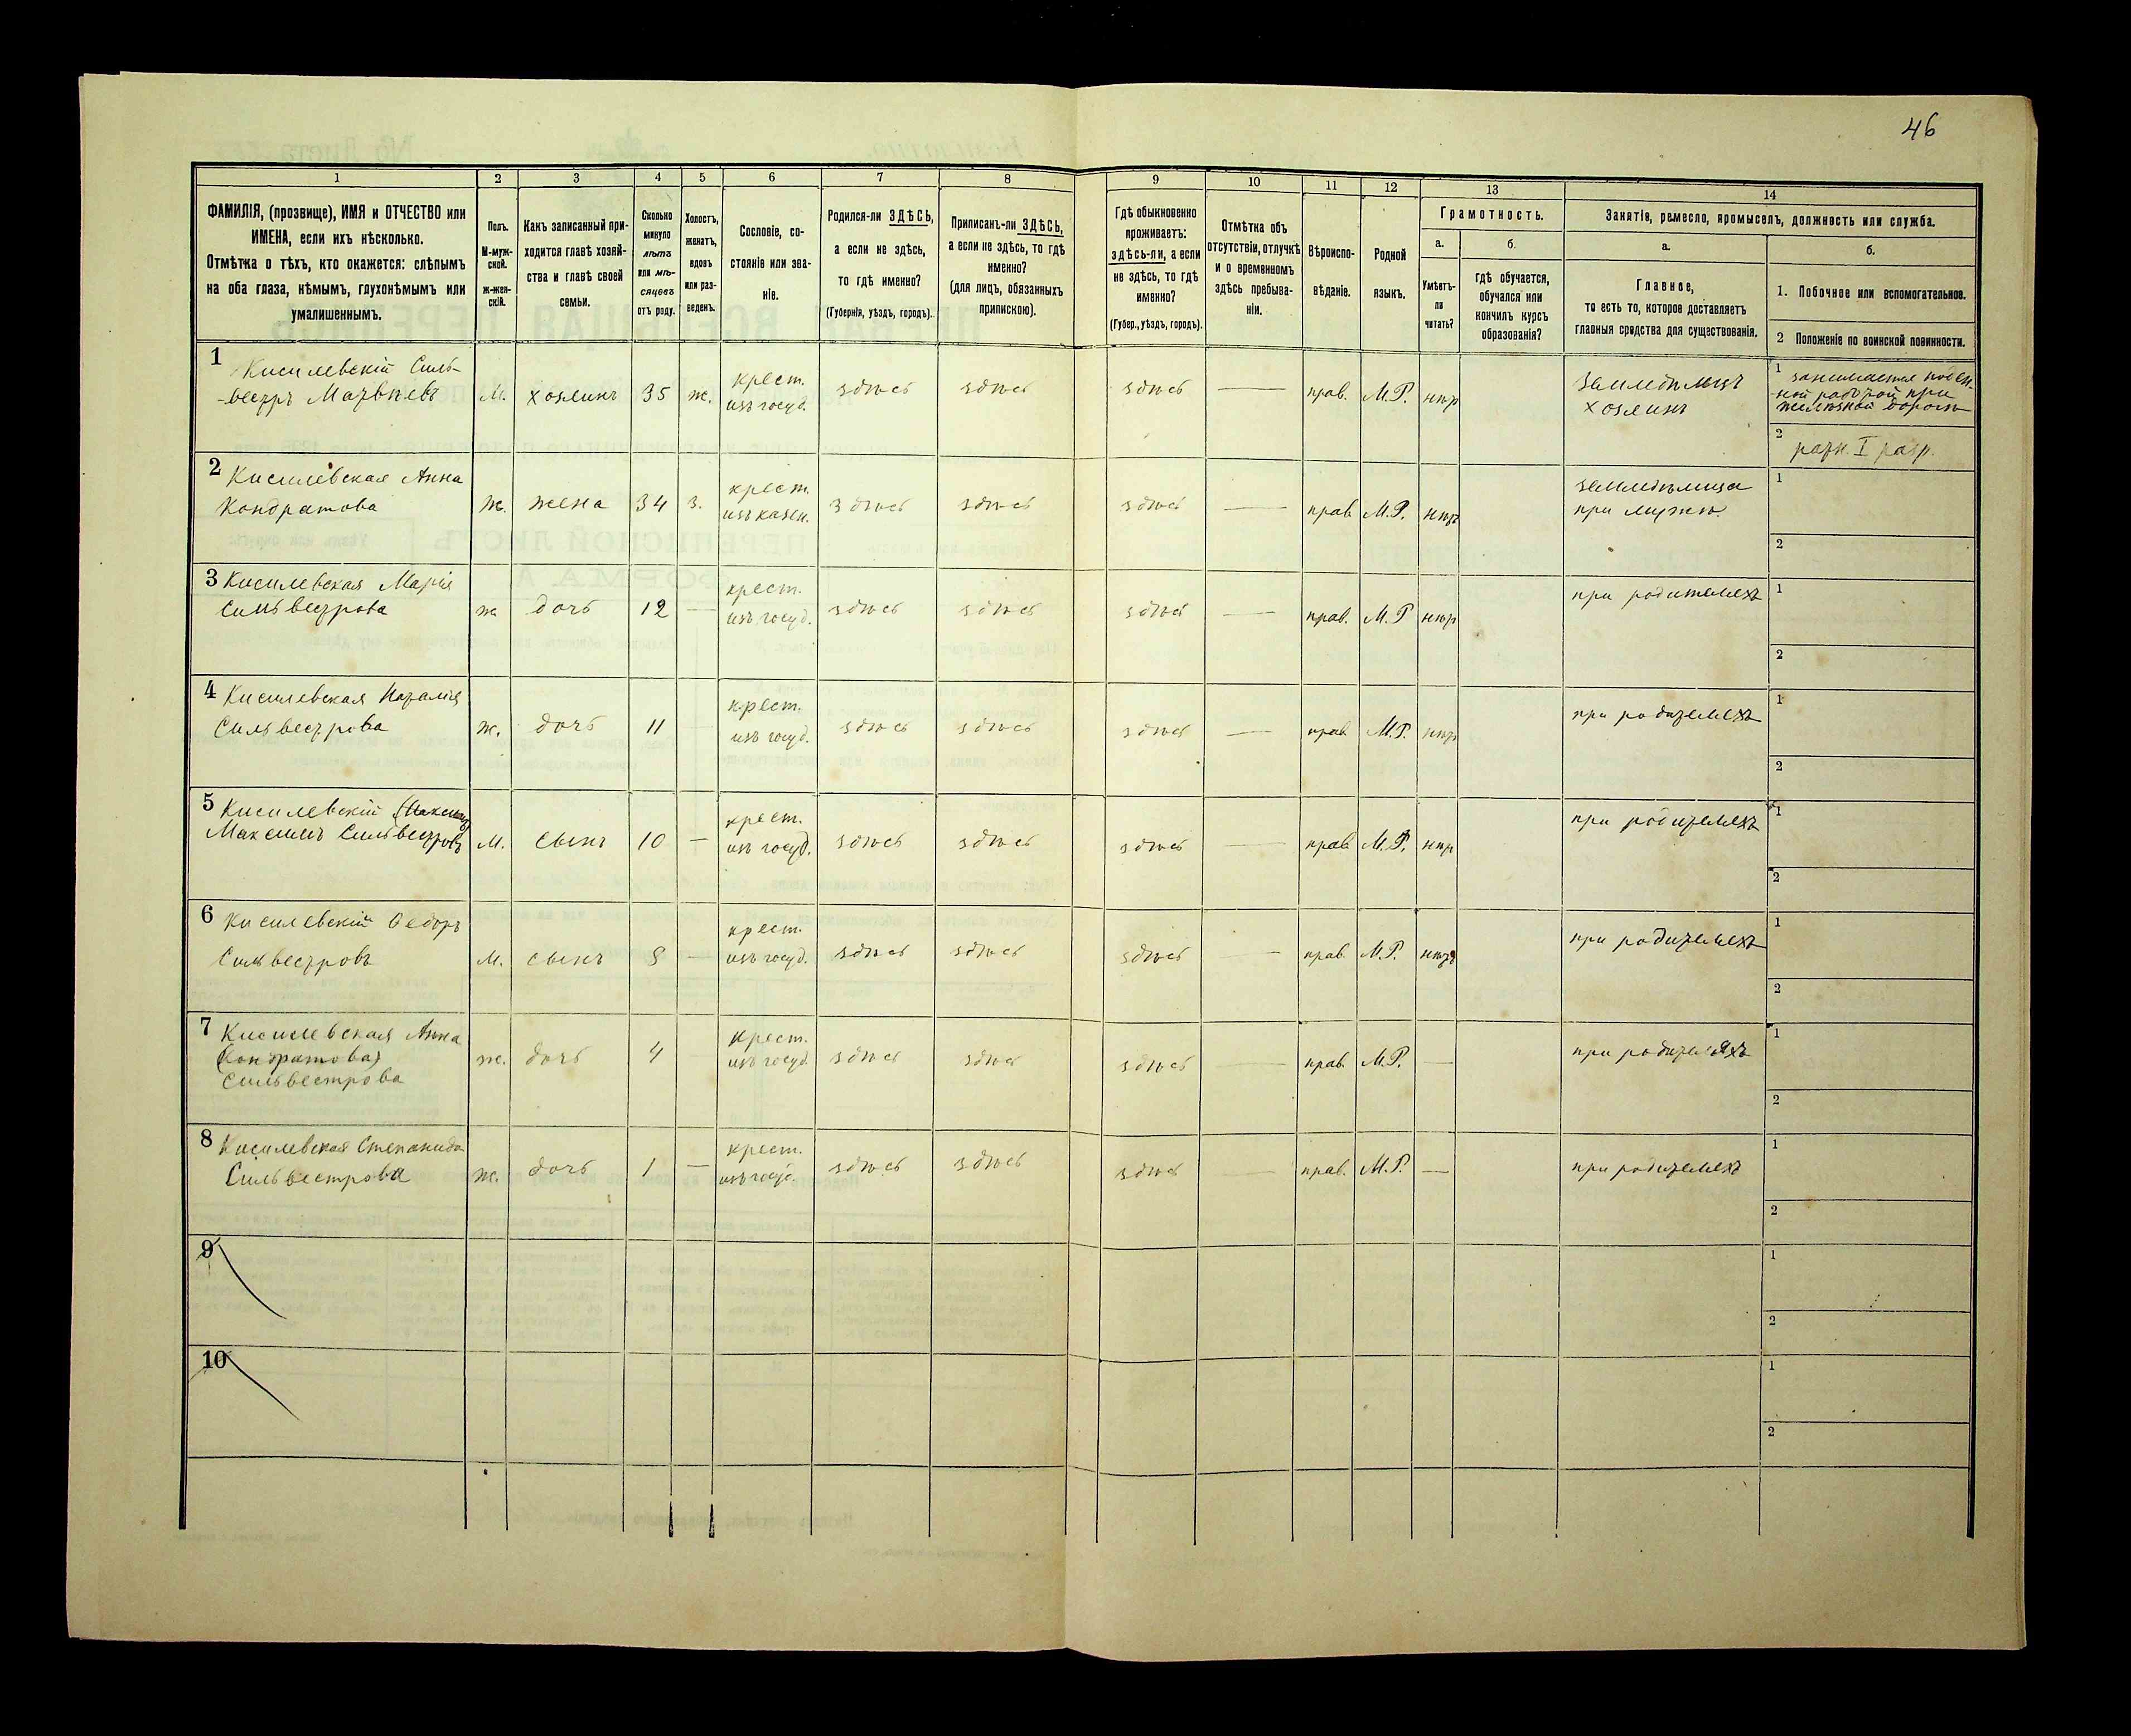 46
1 2 3 4 5 6 7 8 9 10 11 12 13 14
ФАМИЛІЯ, (прозвище), ИМЯ и ОТЧЕСТВО или
ИМЕНА, если ихъ нѣсколько.
Отмѣтка о тѣхъ, кто окажется: слѣпымъ
на оба глаза, нѣмымъ, глухонѣмымъ или
умалишеннымъ.
Полъ.
М-муж-
ской.
Ж-жен-
скій.
Какъ записанный при-
ходится главѣ хозяй-
ства и главѣ своей
семьи.
Сколько
минуло
лѣтъ
или мѣ-
сяцевъ
отъ роду.
Холостъ,
женатъ,
вдовъ
или раз-
веденъ.
Сословіе, со-
стояніе или зва-
ніе.
Родился-ли ЗДѢСЬ,
а если не здѣсь,
то гдѣ именно?
(Губернія, уѣздъ, городъ).
Приписанъ-ли ЗДѢСЬ,
а если не здѣсь, то гдѣ
именно?
(для лицъ, обязанныхъ
припискою).
Гдѣ обыкновенно
проживаетъ:
здѣсь-ли, а если
не здѣсь, то гдѣ
именно?
(Губер., уѣздъ, городъ).
Отмѣтка объ
отсутствіи, отлучкѣ
и о временномъ
здѣсь пребыва-
ніи.
Вѣроиспо-
вѣданіе.
Родной
языкъ.
Грамотность.
а.
Умѣетъ-
ли
читать?
б.
гдѣ обучается,
обучался или
кончилъ курсъ
образованія?
Занятіе, ремесло, промыселъ, должность или служба.
а.
Главное,
то есть то, которое доставляетъ
главныя средства для существованія.
б.
1. Побочное или вспомогательное.
2 Положеніе по воинской повинности.
1 Кисилевскій Силь-
-вестръ Матвѣевъ М. хозяинъ 35 ж. крест. изъ госуд. здѣсь здѣсь здѣсь — прав. М.Р. нѣт
земледѣлецъ
хозяинъ
1 занимается поден-
ной работой при
желѣзной дорогѣ
2 ратн. I разр.
2 Кисилевская Анна
Кондратова Ж. жена 34 з. крест. изъ казен. здѣсь здѣсь здѣсь — прав М.Р. нѣтъ
земледѣлица
при мужѣ
1
2
3 Кисилевская Марія
Сильвестрова ж дочь 12 — крест. изъ госуд. здѣсь здѣсь здѣсь — прав. М.Р нѣт
при родителяхъ
1
2
4 Кисилевская Наталія
Сильвестрова ж. дочь 11 крест. изъ госуд. здѣсь здѣсь здѣсь — прав. М.Р. нѣт
при родителяхъ
1
2
5 Кисилевскій (Максимъ)
Максимъ Сильвестровъ М. сынъ 10 — крест. изъ госуд. здѣсь здѣсь здѣсь — прав М.Р. нѣт
при родителяхъ
1
2
6 Кисилевскій Ѳедоръ
Сильвестровъ М. сынъ 8 — крест. изъ госуд. здѣсь здѣсь здѣсь — прав. М.Р. нѣтъ
при родителяхъ
1
2
7 Кисилевская Анна
(Кондратова)
Сильвестрова ж. дочь 4 крест. изъ госуд. здѣсь здѣсь здѣсь — прав. М.Р. —
при родителяхъ
1
2
8 Кисилевская Степанида
Сильвестрова ж. дочь 1 — крест. изъ госуд. здѣсь здѣсь здѣсь — прав. М.Р. —
при родителяхъ
1
2
9
1
2
10
1
2